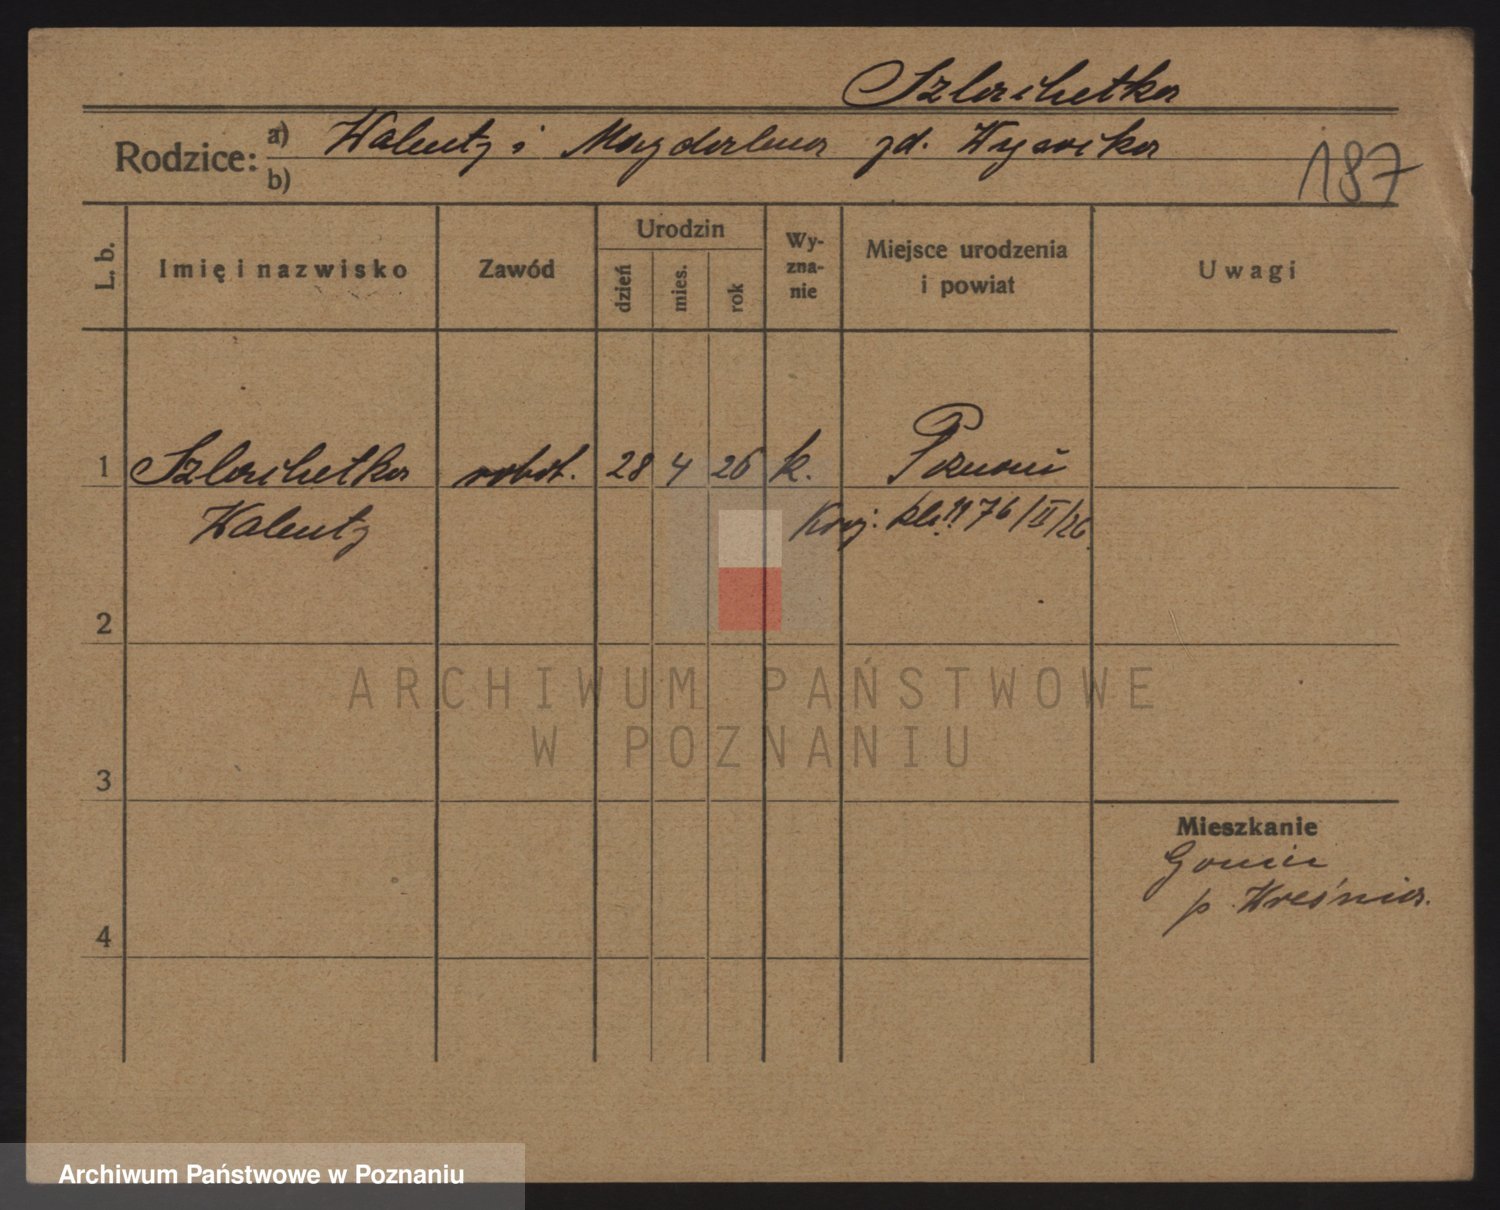 Szlachetka
Rodzice: a) Walenty i Magdalena zd.
b)
187
L. b.
Imię i nazwisko
Zawód
Urodzin
dzień
mies.
rok
Wy-
zna-
nie
Miejsce urodzenia
i powiat
Uwagi
1 Szlachetka robot. 28 4 26 k. Poznań
Walenty 76/II/26
2
3
4
Mieszkanie
p.
ARCHIWUM PAŃSTWOWE
W POZNANIU
Archiwum Państwowe w Poznaniu